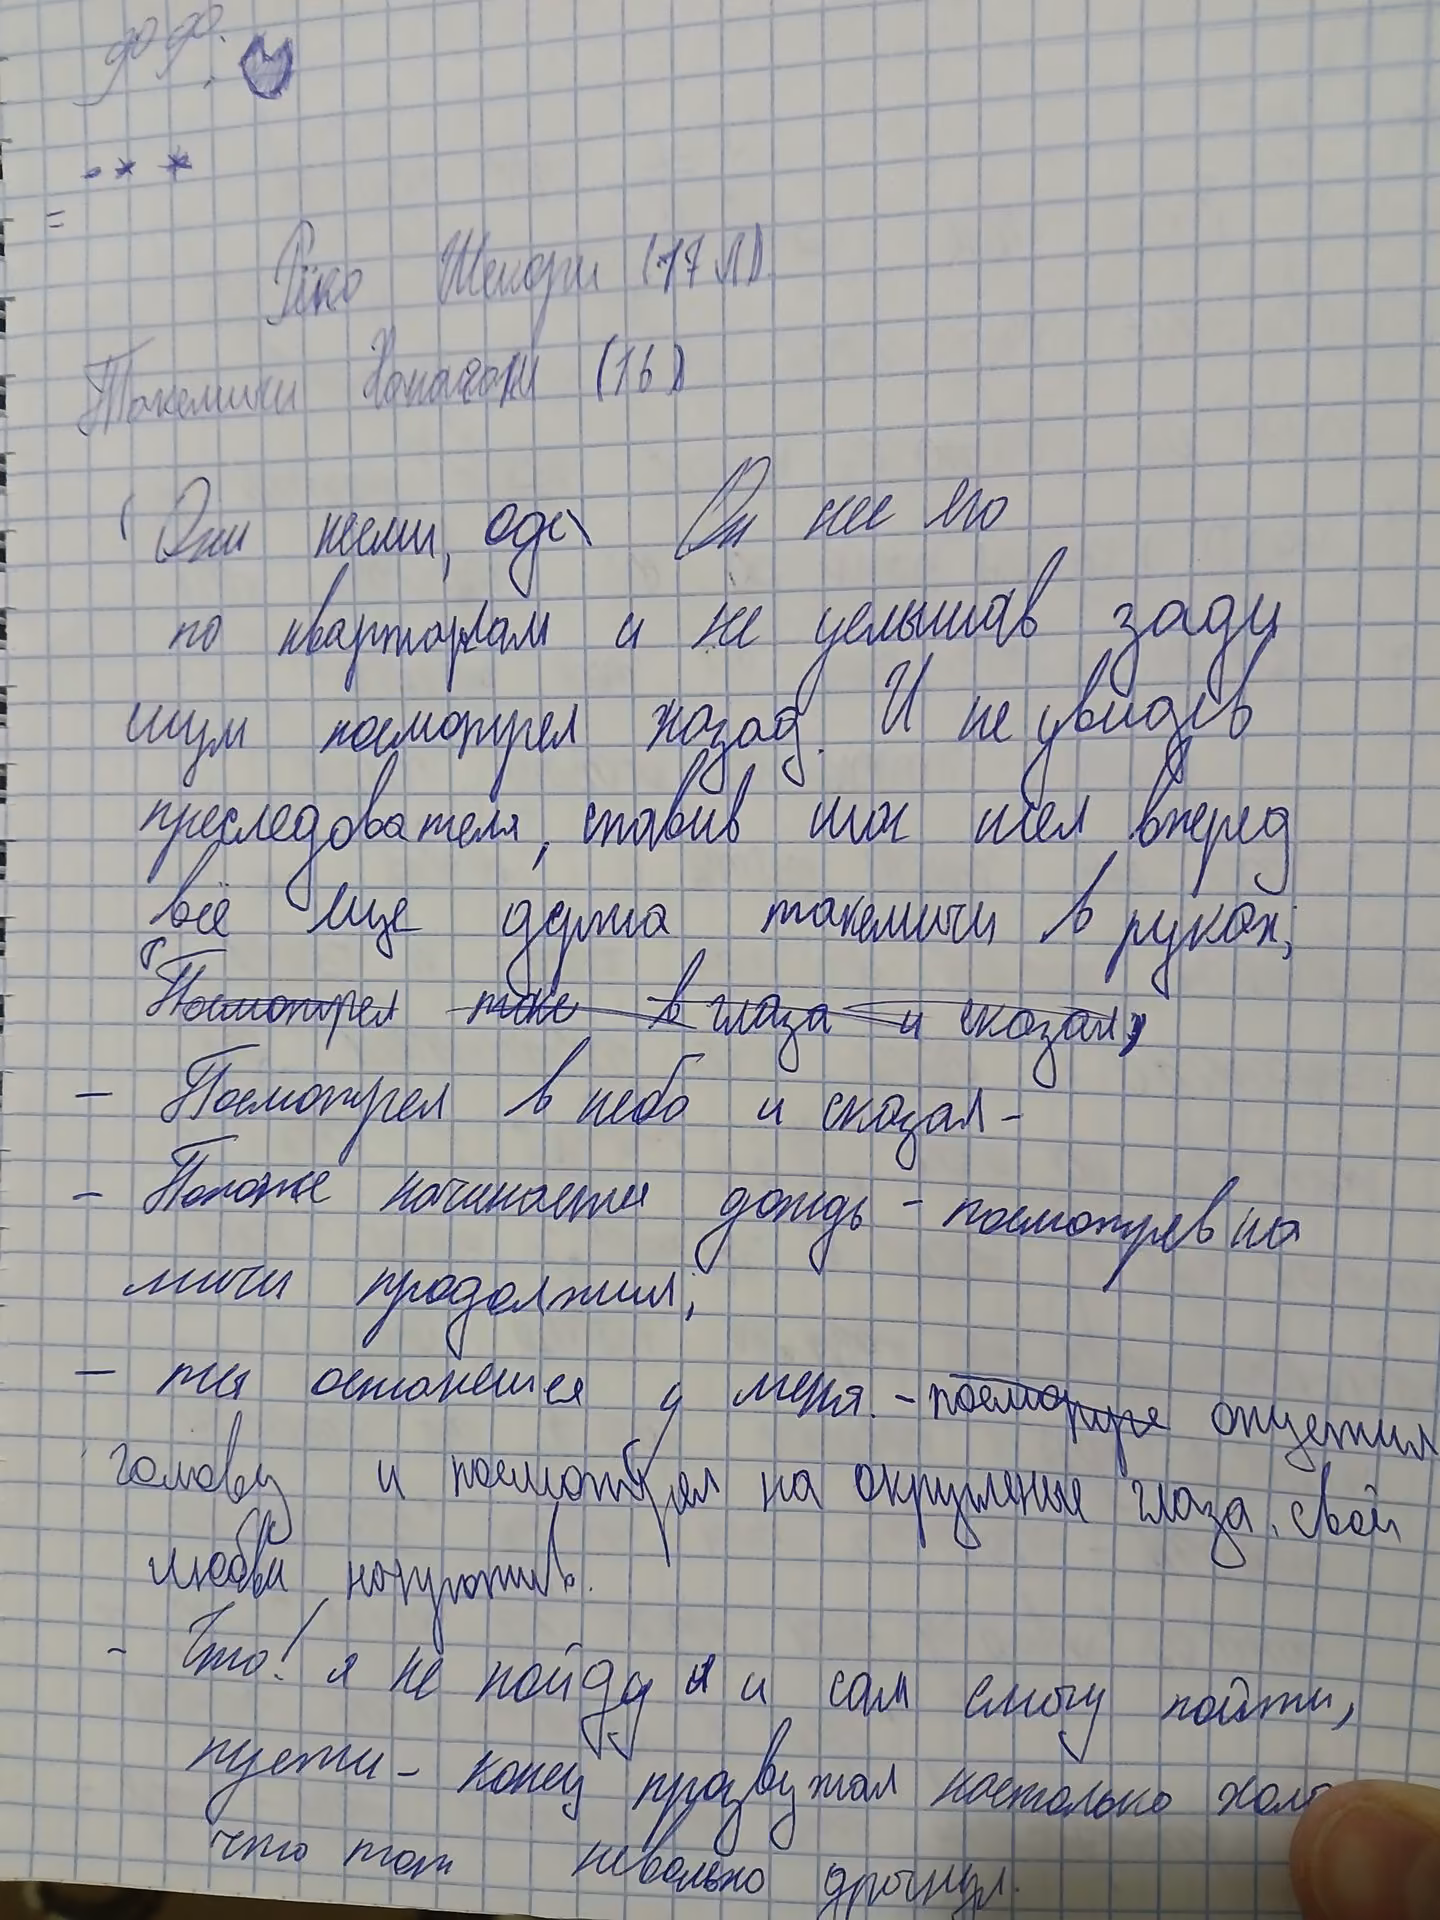 до до.
Рико Шенори (17 Л)
Такемичи Ханагаки (16)
Они несли, Он нес его
по кварталам и не услышав зади
шум посмотрел назад. И не увидев
преследователя, ставив шаг шел вперед
всё еще держа такемичи в руках;
Посмотрел таке в глаза и сказал,
- Посмотрел в небо и сказал -
- Похоже начинается дождь - посмотрев на
мичи продолжил;
- ты останешся у меня. - посмотре опустил
голову и посмотрел на округленые глаза. свой
любви напротив.
- Что! я не пойду я и сам смогу пойти,
пусти - конец прозвужал настолько холо
что тот невольно дрогнул.